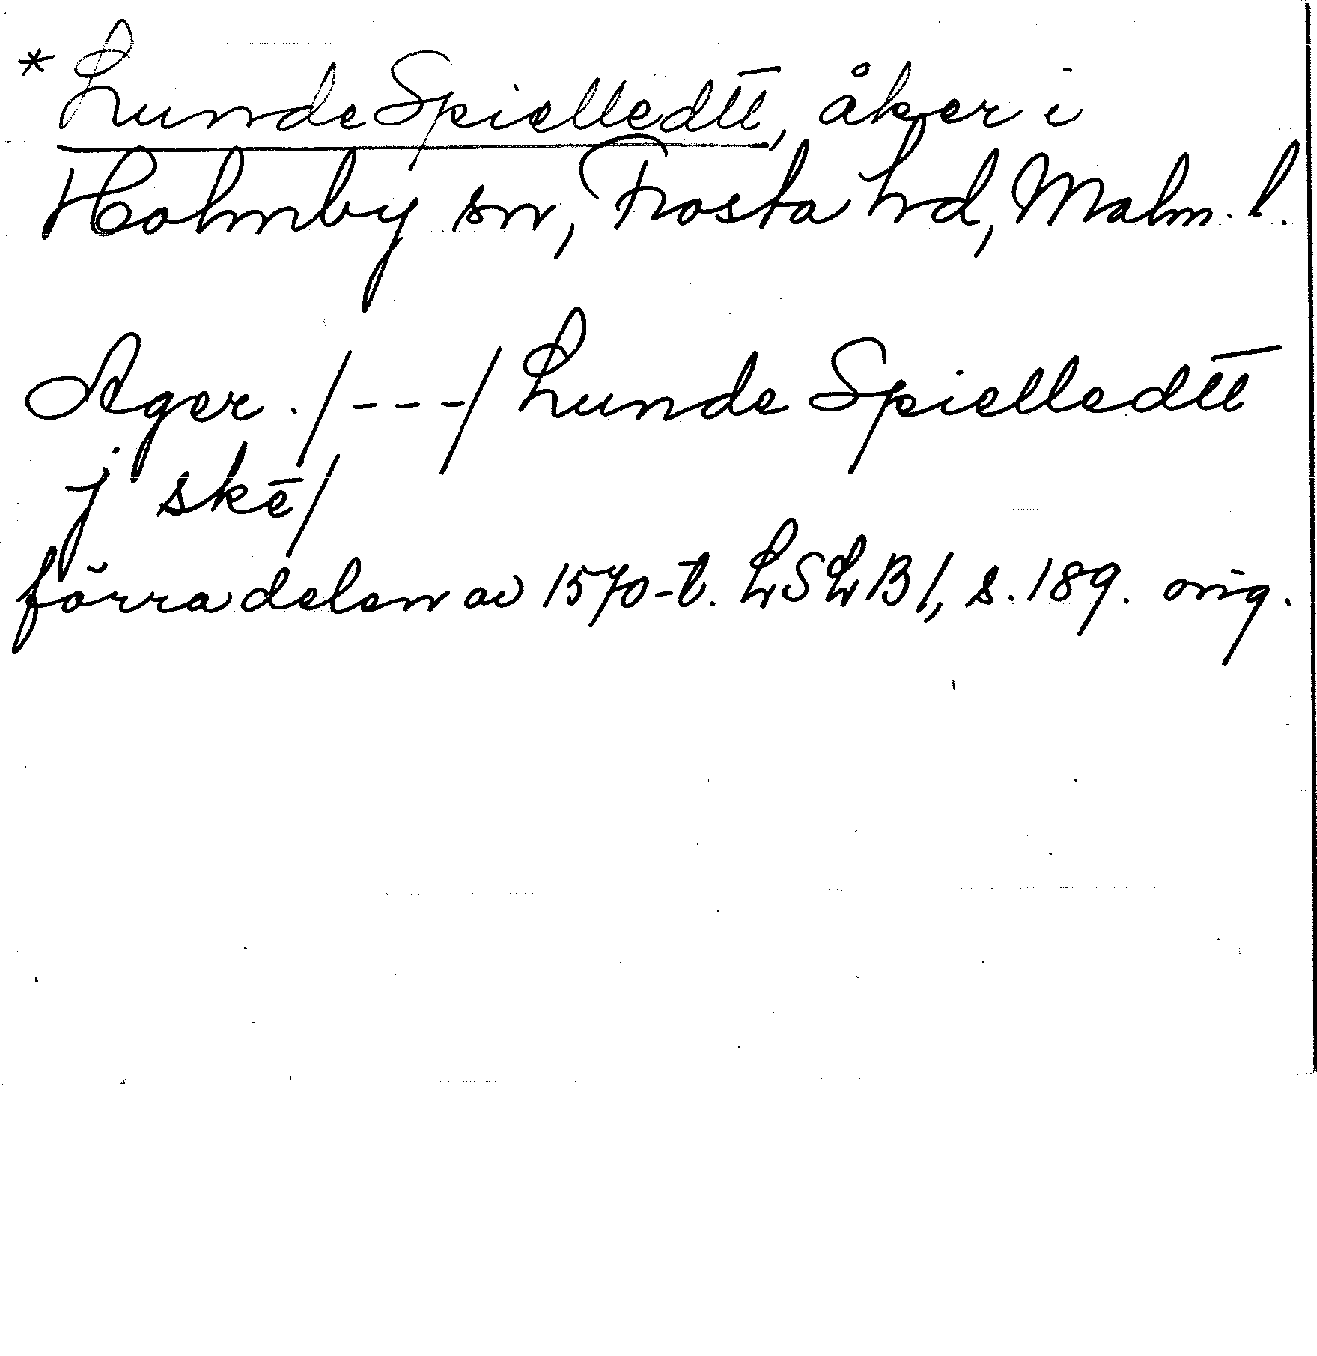 * Lunde Spielledtt, åker i
Holmby sn, Frosta hd, Malm. l.
Ager . /---/ Lunde Spielledtt
j skē/
förra delen av 1570-t. LSLB 1, s. 189. orig.